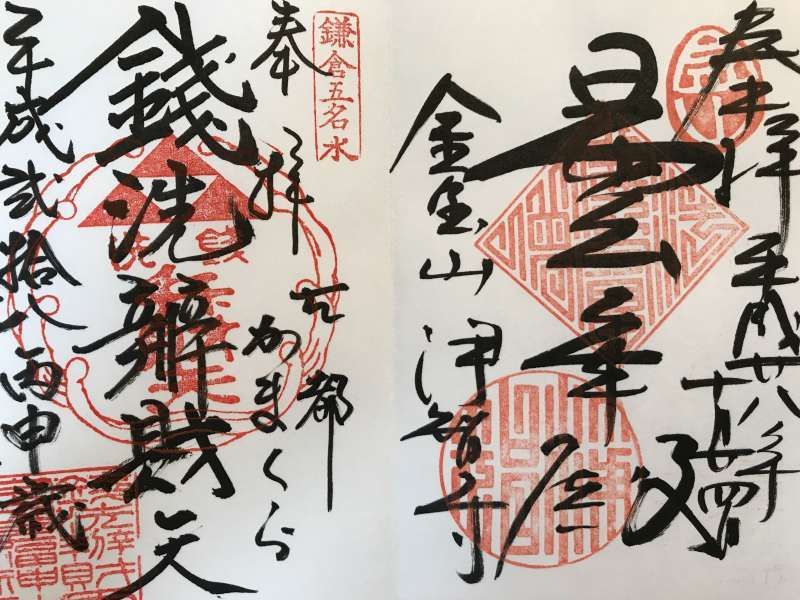 奉拝
平成廿八年
曇華殿
金宝山 浄智寺
鎌倉五名水
奉拝
古都
かまくら
錢洗辨財天
平成弐拾八丙申歳